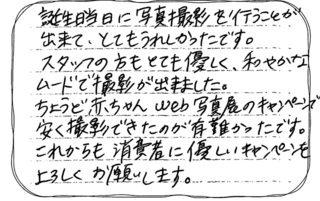 誕生日当日に写真撮影を行うことが
出来て、とてもうれしかったです。
スタッフの方もとても優しく、和やかな
ムードで撮影が出来ました。
ちょうど赤ちゃんweb写真展のキャンペーンで
安く撮影できたのが有難かったです。
これからも消費者に優しいキャンペーンを
よろしくお願いします。